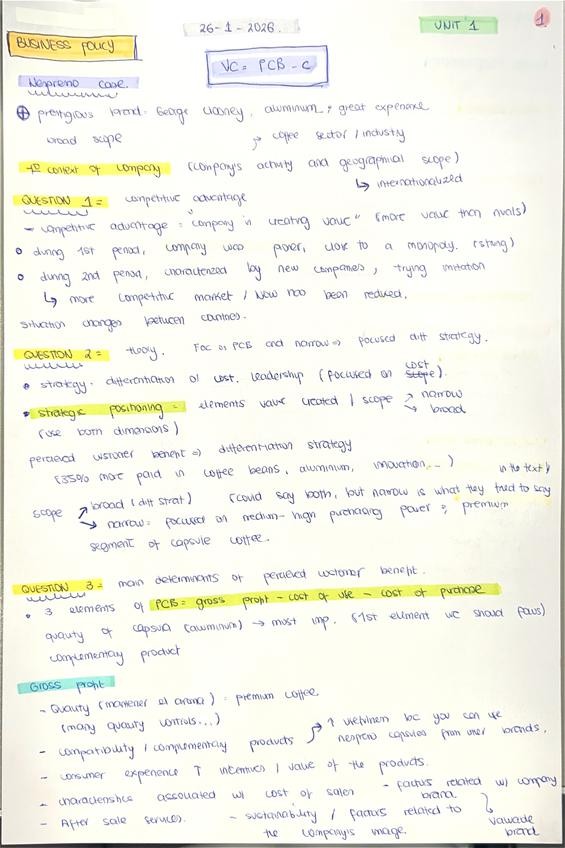 26-1-2026.
UNIT 1
1
BUSINESS POLICY
VC = PCB - C
Nespresso case.
⊕ prestigious brand. George Clooney, aluminum, great experience
broad scope → coffee sector / industry
context of company (company's activity and geographical scope)
↳ internationalized
QUESTION 1 = competitive advantage
- competitive advantage = "company in creating value" (more value than rivals)
○ during 1st period, company was pioner, close to a monopoly. (strong)
○ during 2nd period, characterized by new companies, trying imitation
↳ more competitive market / now has been reduced.
situation changes between countries.
QUESTION 2 = theory. Foc on PCB and narrow => focused diff strategy.
• strategy. differentiation or cost. leadership (focused on cost scope).
• strategic positioning = elements value created / scope ↗ narrow
↘ broad
(use both dimensions)
perceived customer benefit => differentiation strategy
(35% more paid in coffee beans, aluminum, innovation...)
in the text
scope ↗ broad (diff strat) (could say both, but narrow is what they tried to say
↘ narrow = focused on medium-high purchasing power; premium
segment of capsule coffee.
QUESTION 3 = main determinants of perceived customer benefit.
• 3 elements of PCB = gross profit - cost of use - cost of purchase
quality of capsula (aluminum) → most imp. (1st element we should focus)
complementary product
Gross profit
- Quality (mantener el aroma) = premium coffee.
(many quality controls...)
- compatibility / complementary products ↗ ↑ usefulness bc you can use
nespresso capsules from other brands.
- consumer experience ↑ incentives / value of the products.
- characteristics associated w/ cost of sales
- factors related w/ company
brand.
↳ valuable
brand
- After sale services.
- sustainability / factors related to
the company's image.